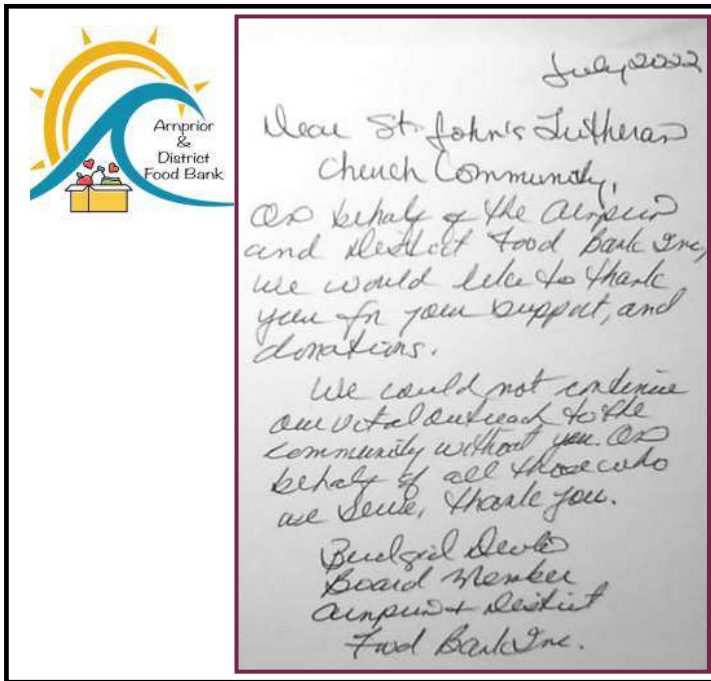 Arnprior
&
District
Food Bank
July 2022
Dear St. John's Lutheran
Church Community,
On behalf of the Arnprior
and District Food Bank Inc,
we would like to thank
you for your support, and
donations.
We could not continue
our vital outreach to the
community without you. On
behalf of all those who
we serve, thank you.
Board Member
Arnprior + District
Food Bank Inc.